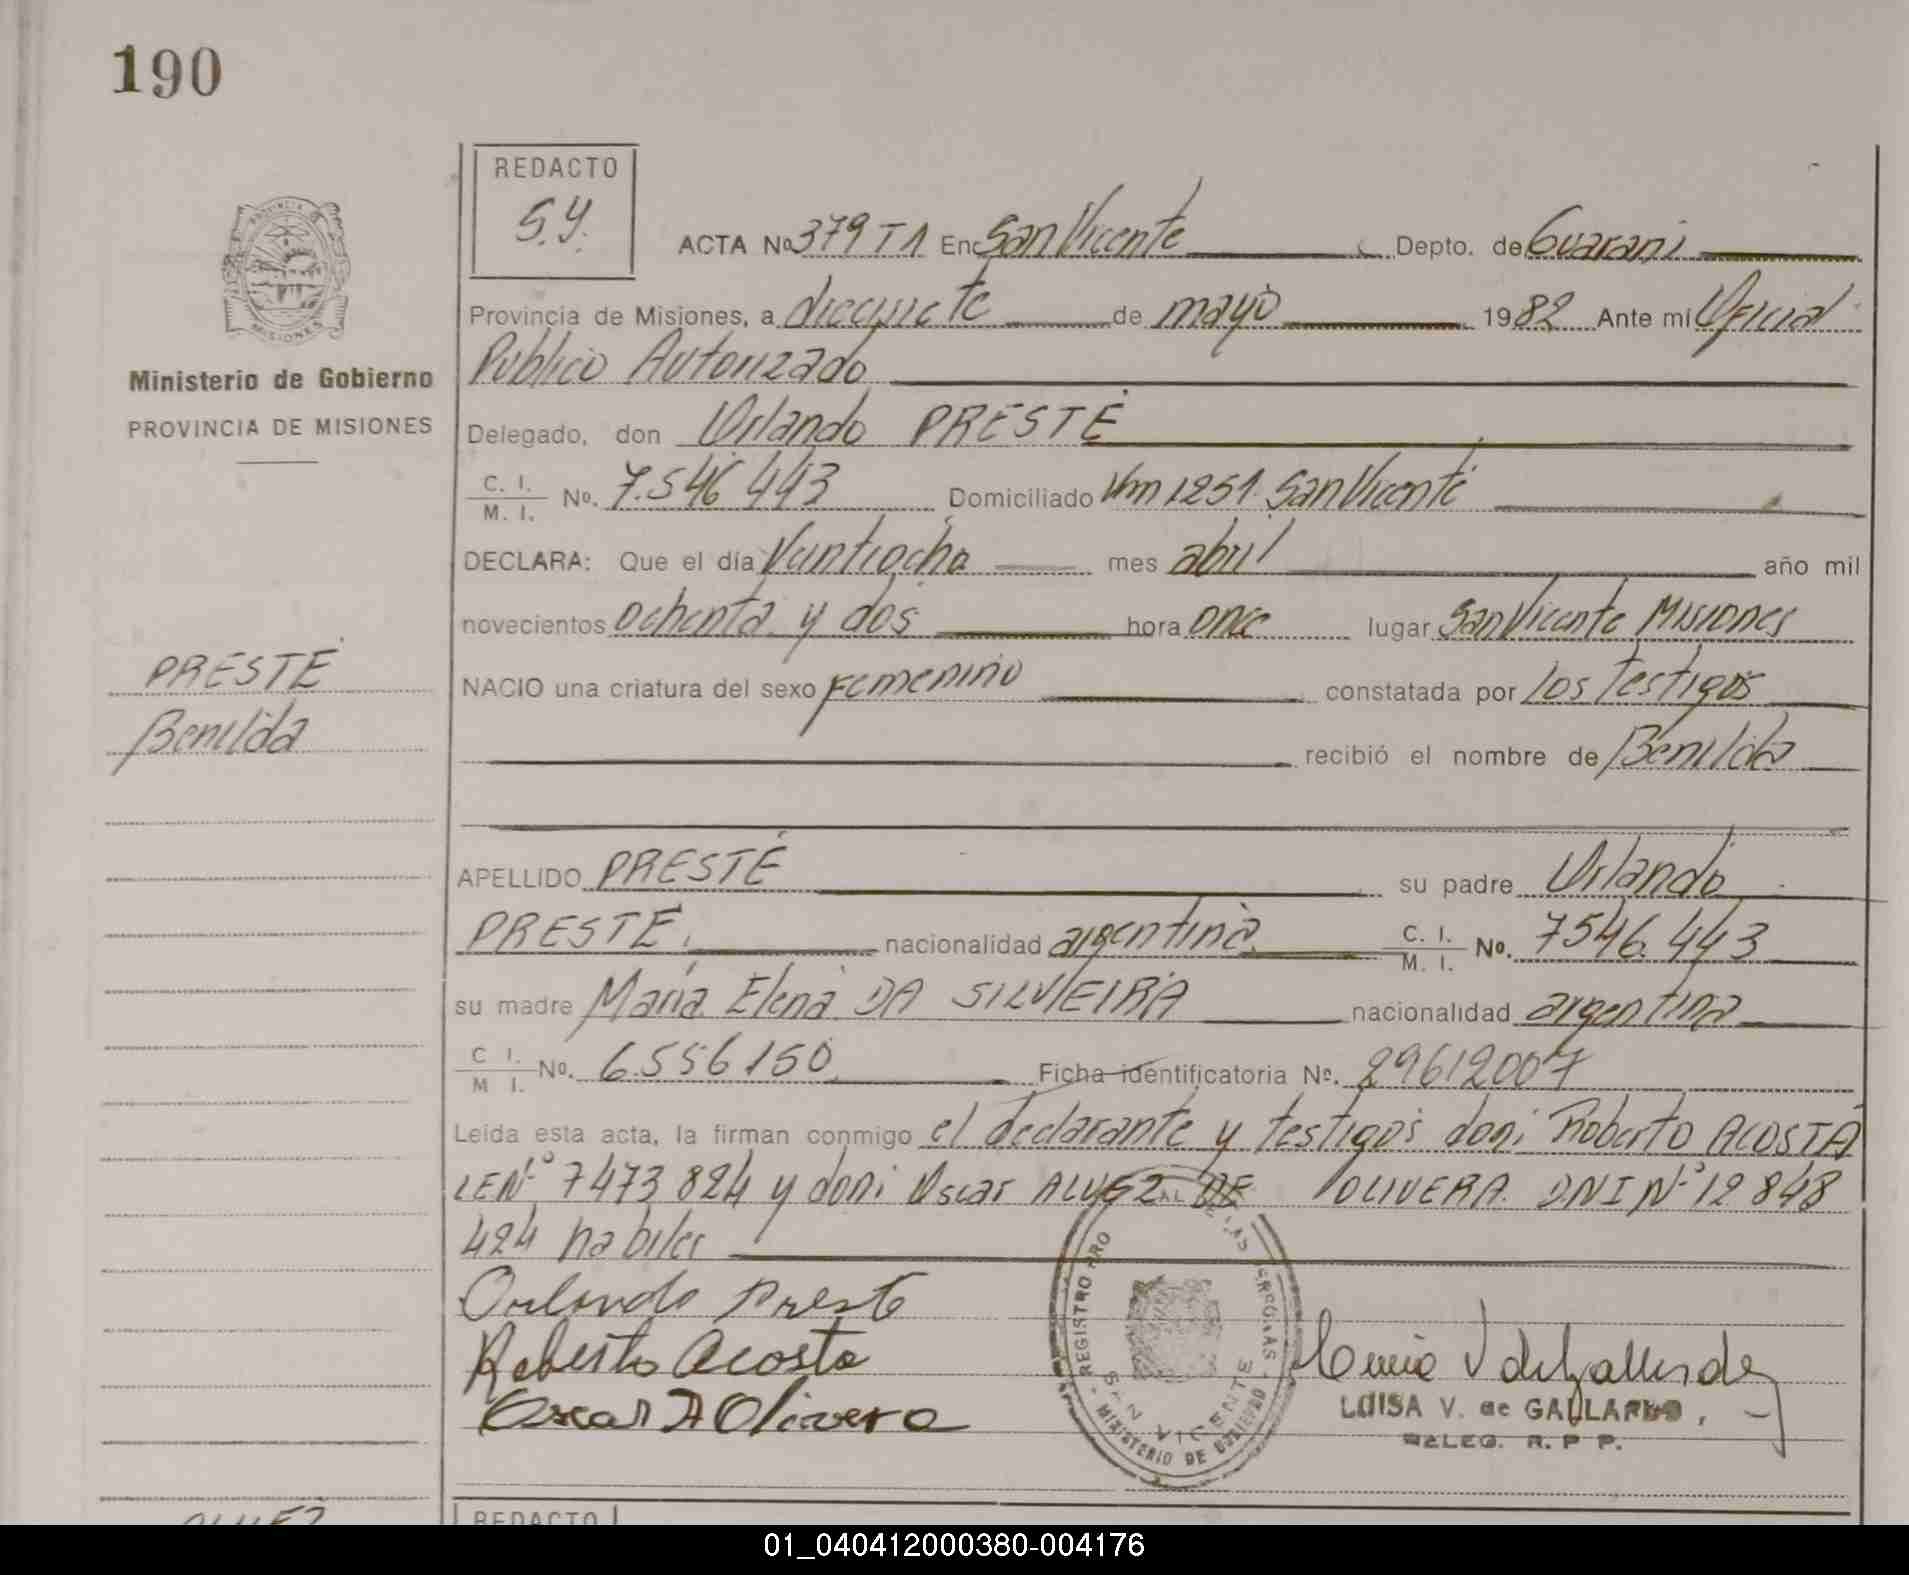 190
REDACTO
S.Y.
ACTA No 379 T1 En San Vicente Depto. de Guarani
Provincia de Misiones, a diecisiete de mayo 1982 Ante mi Oficial
Publico Autorizado
Ministerio de Gobierno
PROVINCIA DE MISIONES
Delegado, don Orlando PRESTE
C. I.
M. I. No. 7.546 443 Domiciliado Km 1251 San Vicente
DECLARA: Que el día Veintiocho mes abril año mil
novecientos ochenta y dos hora once lugar San Vicente Misiones
PRESTE
Benilda
NACIO una criatura del sexo Femenino constatada por los testigos
recibió el nombre de Benilda
APELLIDO PRESTE su padre Orlando
PRESTE. nacionalidad argentina C. I.
M. I. No. 7546.443
su madre María Elena DA SILVEIRA nacionalidad argentina
C I.
M I. No. 6.556150 Ficha identificatoria No. 29612007
Leida esta acta, la firman conmigo el declarante y testigos don: Roberto ACOSTA
LE Nº 7473 824 y don: Oscar ALVEZ DE OLIVERA. DNI Nº 12 848
424 habiles
Orlando Preste
Roberto Acosta
Oscar A Olivera
REGISTRO
SAN VICENTE
MINISTERIO DE GOBIERNO
LUISA V. de GALLARDO
DELEG. R. P P.
ALVEZ
REDACTO
01_040412000380-004176